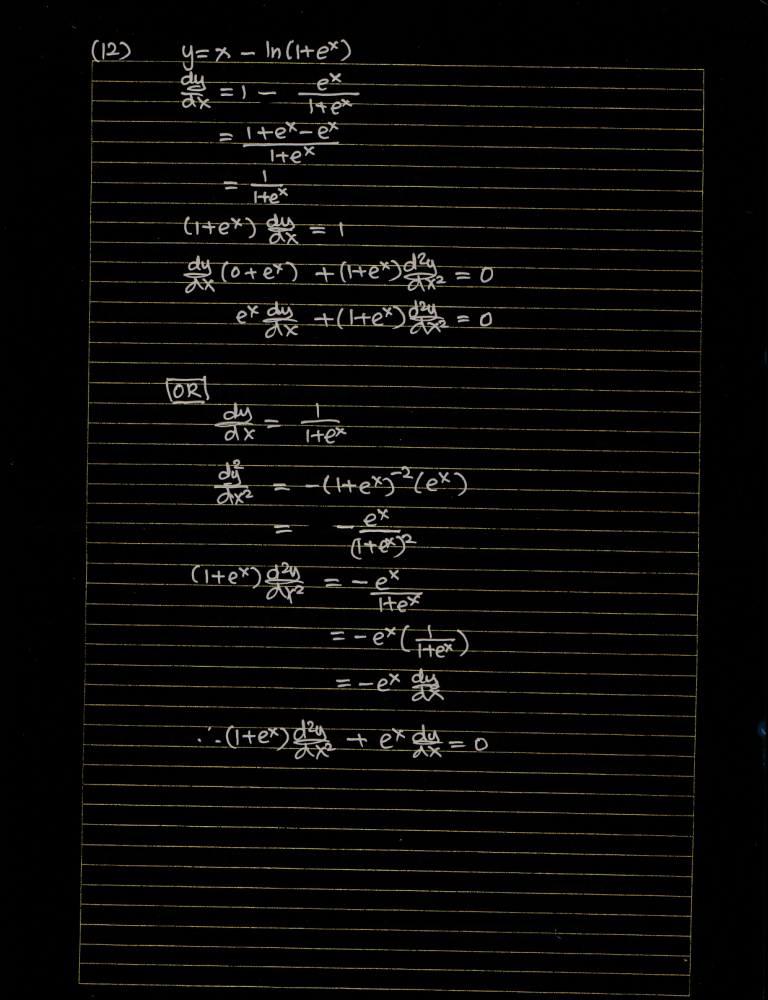 (12) y = x - ln(1+eˣ)
dy/dx = 1 - eˣ/(1+eˣ)
= (1+eˣ-eˣ)/(1+eˣ)
= 1/(1+eˣ)
(1+eˣ) dy/dx = 1
dy/dx (0+eˣ) + (1+eˣ) d²y/dx² = 0
eˣ dy/dx + (1+eˣ) d²y/dx² = 0
OR
dy/dx = 1/(1+eˣ)
dy²/dx² = -(1+eˣ)⁻²(eˣ)
= - eˣ/(1+eˣ)²
(1+eˣ) d²y/dx² = - eˣ/(1+eˣ)
= -eˣ (1/(1+eˣ))
= -eˣ dy/dx
∴ (1+eˣ) d²y/dx² + eˣ dy/dx = 0